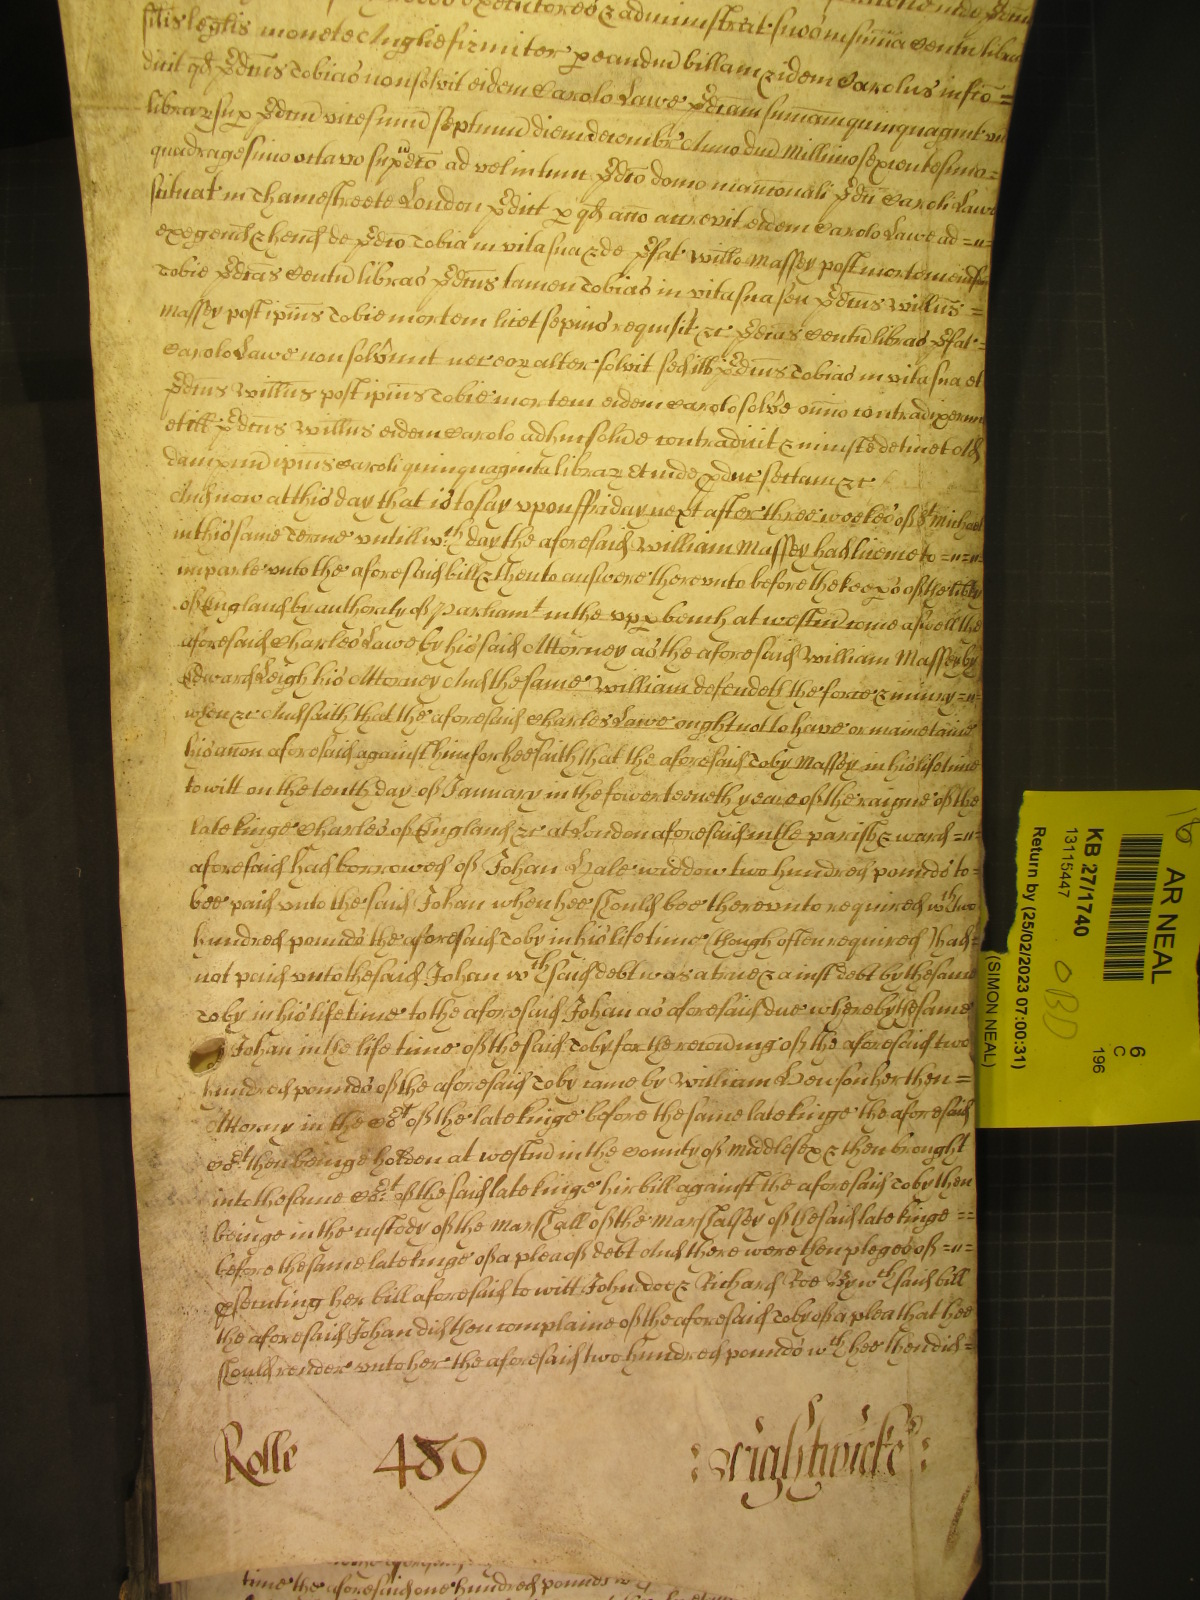 executores & administrat suos in sum̄a Centū libra
sitis legalis monete Anglie firmiter p eandm̄ billam & idem Carolus in f̄co =
dicit qd p̄dcūs Tobias non solvit eidem Carolo Lawe p̄dcām sum̄am quinquagint un
librar sup p̄dcm̄ vicesimū septimū diem decembr Anno dnī Millimo sexcentesimo =
quadragesimo octavo sup̄dc̄o ad vel in tunc p̄dc̄o domo mancōnali p̄dc̄i Caroli Lawe
scituat in Thamestreete London p̄dict p qd accō accrevit eidem Carolo Lawe ad =
exegend & hend de p̄dc̄o Tobia in vita sua & de p̄fat Willo Massey post mortem eiusdm
Tobie p̄dcās Centū libras p̄dcūs tamen Tobias in vita sua seu p̄dcūs Willus =
Massey post ipius Tobie mortem licet sepius requisit &c p̄dcās Centū libras p̄fat =
Carolo Lawe non solverunt nec eor alter solvit sed ill p̄dcūs Tobias in vita sua et
p̄dcūs Willus post ipius Tobie mortem eidem Carolo solvere om̄ino contradixerunt
et ill p̄dcūs Willus eidem Carolo adhuc solvere contradicit & iniuste detinet Ad
dampnū ipius Caroli quinquaginta librar Et inde pduc sectam &c
And now at this day that is to say vpon ffriday next after three weekes of St Michael
in this same Terme vntill wch day the aforesaid William Massey had licence to =
imparle vnto the aforesaid bill & then to answere therevnto before the keeps of the libty
of England by authoraty of Parliamt in the vpp bench at westm̄ come aswell the
aforesaid Charles Lawe by his said Attorney as the aforesaid William Massey by
Edward Leigh his Attorney And the same William defendeth the force & iniury =
when &c And saith that the aforesaid Charles Lawe ought not to have or mainetaine
his accōn aforesaid against him for hee saith that the aforesaid Toby Massey in his life time
to witt on the tenth day of January in the fowerteeneth yeare of the raigne of the
late kinge Charles of England &c at London aforesaid in the parish & ward =
aforesaid had borrowed of Johan Hale widdow two hundred pounds to =
bee paid vnto the said Johan when hee should bee therevnto required wch two
hundred pounds the aforesaid Toby in his life time (though often required) had =
not paid vnto the said Johan wch said debt was a true & a iust debt by the same
Toby in his life time to the aforesaid Johan as aforesaid due whereby the same
Johan in the life time of the said Toby for the recouing of the aforesaid two
hundred pounds of the aforesaid Toby came by William Henson her then =
Attorny in the Cort of the late kinge before the same late kinge the aforesaid
Cort then beinge holden at westm̄ in the County of Middlesex & then brought
into the same Cort of the said late kinge hir bill against the aforesaid Toby then
beinge in the custody of the Marshall of the Marshalsey of the said late kinge =
before the same late kinge of a plea of debt And there were then pleges of =
psecuting her bill aforesaid to witt John doe & Richard Roe By wch said bill
the aforesaid Johan did then complaine of the aforesaid Toby of a plea that hee
should render vnto her the aforesaid two hundred pounds wch hee then did =
Rolle 489 : Wightwicke :
time the aforesaid one hundred pounds
18
AR NEAL
6
C
196
KB 27/1740
13115447
OBD
Return by (25/02/2023 07:00:31)
(SIMON NEAL)